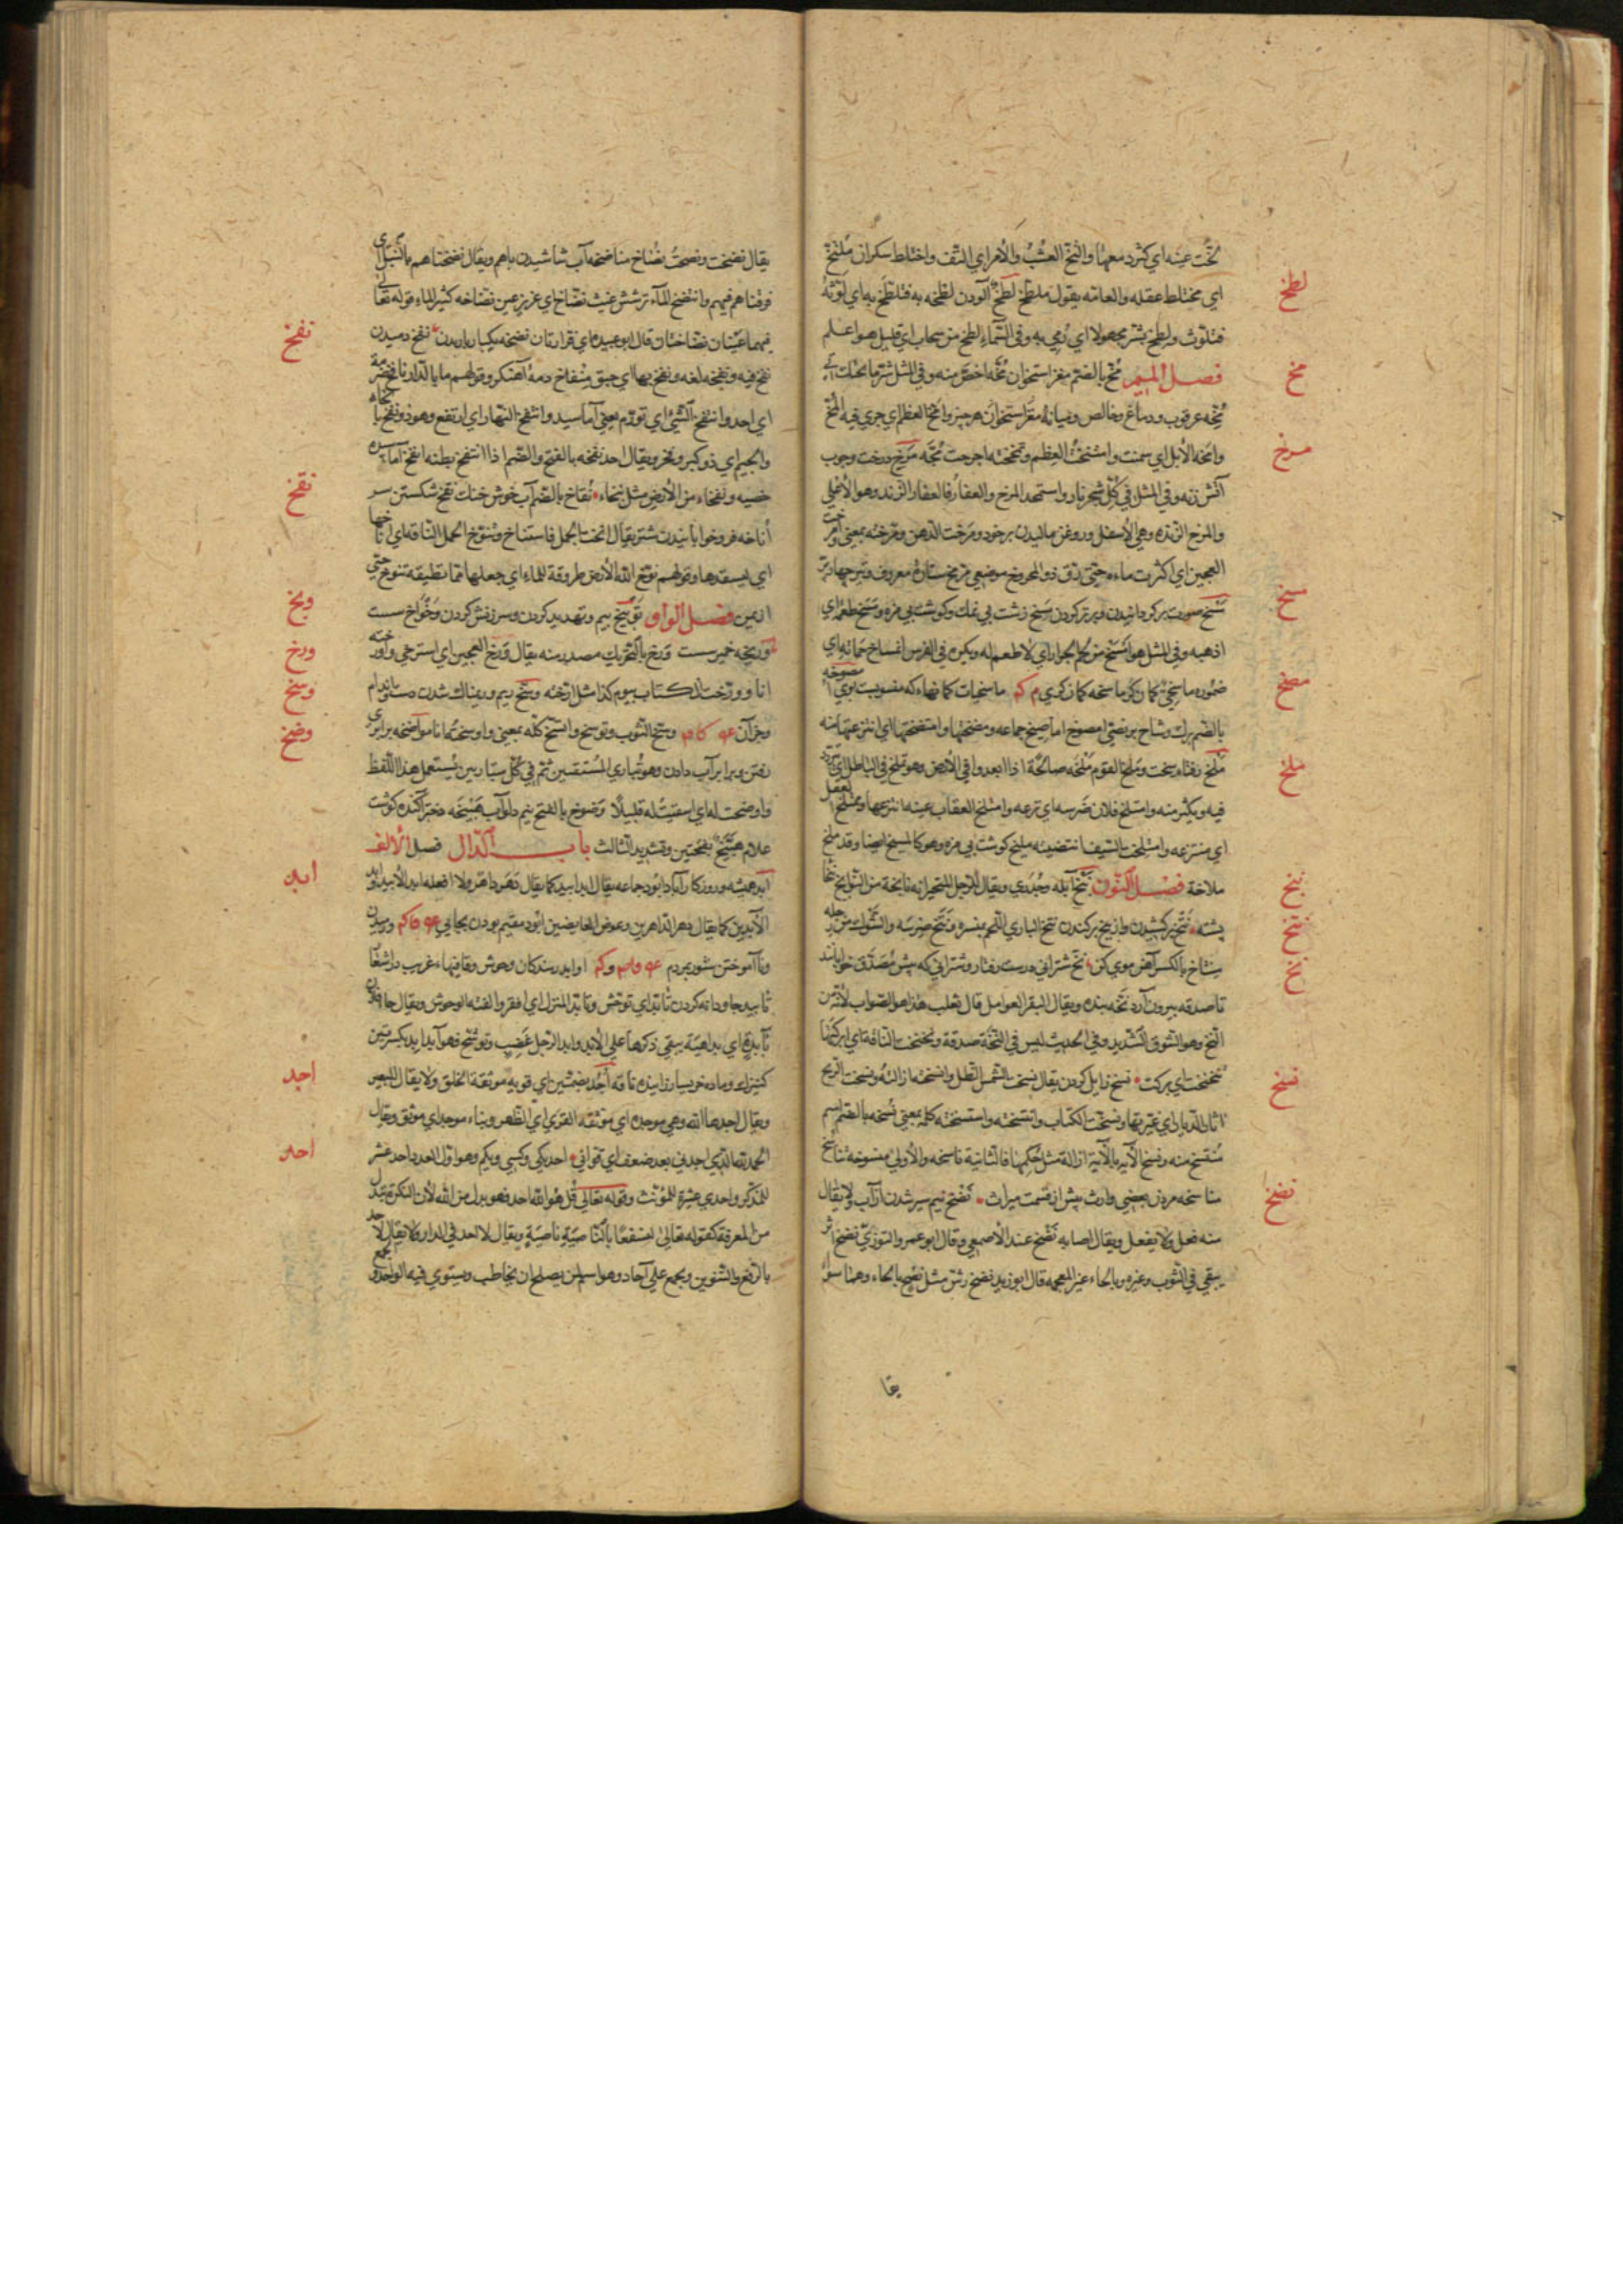 لخّت عينه اي كثر دمعها والتخّ العشب والأمر اي التفّ واختلط سكران ملتخّ
لطخ
اي مختلط عقله والعامّه يقول ملطّخ لطخ آلودن لطخه به فتلطّخ به اي لوّثه
فتلوّث ولطخ بشرّ مجهولا اي رمي به وفي السّماء لطخ من سحاب اي قليل هو اعلم
مخ
فصل الميم مخّ بالضّم مغز استخوان مخّه اخصّ منه وفي المثل شرّ ما
مخّه عرقوب ودماغ وخالص وميانه مغز استخوان هر چيز وامخّ العظم اي جري فيه المخّ
مرخ
وامخّه الأبل اي سمنت وامتخخت العظم وتمخخته اخرجت مخّه مرخ درخت وچوب
آتش زنه وفي المثل في كلّ شجر نار واستمجد المرخ والعفار فالعفار الزند وهو الأعلي
والمرخ الزنده وهي الأسفل وروغن ماليدن بر خود ومرخت الدهن ومرخته بمعني وامرخت
العجين اي اكثرت ماءه حتي رقّ ذو الممروخ موضعي مرّيخ ستاره معروف وتير
مسخ
مسخ صورت بر كردانيدن وبدتر كردن مسيخ زشت بي نمك وكوشت بي مزه ومسخ طعمه اي
اذهبه وفي المثل هو امسخ من لحم الحوار اي لا طعم له ويكره في الفرس انمساخ حماته اي
مصخ
ضموره ماسخيّ كمان كر ماسخه كمان كري م كم ماسخيات كمانهاء كه منسوبست بوي امصوخه
بالضّم برك وشاخ بر نصي امصوخ اماصيخ جماعه ومصختها وامتصختها اي انتزعتها منه
ملخ
ملخ رفتار سخت وملخ القوم ملخه صالحة اذا ابعدوا في الأرض وهو يملخ في الباطل اي يتردد
فيه ويكثر منه وامتلخ فلان ضرسه اي نزعه وامتلخ العقاب عينه انتزعها وممتلخ العقل
اي منتزعه وامتلخت السّيف انتضيته مليخ كوشت بي مزه وهو كالمسيخ ايضا وقد ملخ
نبخ
ملاخة فصل النّون نبخ آبله وجدري ويقال للرّجل المتحيّر انه نابخة من النّوابخ
نتخ
پشته نتخ بر كشيدن واز بيخ بر كندن نتخ البازي اللّحم بمنسره ونتخ ضرسه والشّوك من رجله
نخ
منتاخ بالكسر آهن موي كن نخّ شتراني درست رفتار وشتراني كه پيش مصدّق خوابانند
تا صدقه بيرون آرد نخّه بنده ويقال البقر العوامل قال ثعلب هذا هو الصّواب لأنّه من
النّخ وهو السّوق الشّديد وفي الحديث ليس في النّخّة صدقة ونخنخت النّاقة اي ابركتها
نسخ
فتنخنخت اي بركت نسخ زايل كردن يقال نسخت الشّمس الظل وانتسخته ازالته ونسخت الريح
اثار الدّيار اي غيّرتها ونسخت الكتاب وانتسخته واستنسخته كلّه بمعني نسخه بالضّم اسم
منتسخ منه ونسخ الآيه بالآية ازالة مثل حكمها فالثّانية ناسخه والأولي منسوخة تناسخ
نضخ
مناسخه مردن بعضي وارث پيش از قسمت ميراث نضخ نيم سير شدن از آب ولا يقال
منه فعل ولا يفعل ويقال اصابه نضخ عند الأصمعي وقال ابو عمر والتّوزيّ نضخ اثر
يبقي في الثّوب وغيره وبالحاء غير المعجمه قال ابو زيد نضخ رشّ مثل نضح بالحاء وهما سواء
يقا
يقال نضخت ونضحت نضاخ مناضخه آب پاشيدن باهم ويقال نضخناهم بالنّبل اي
فرّقناهم فيهم وانتضخ الماء ترشش غيث نضّاخ اي غزير عين نضّاخه كثير الماء قوله تعالي
نفخ
فيهما عينان نضّاختان قال ابو عبيده اي فوّارتان نضخه يكبار باريدن نفخ دميدن
نفخ فيه ونفخه لغه ونفخ بها اي حبق منفاخ دمه آهنكر وقولهم ما بالدّار نافخ ضرمة
اي احد وانتفخ الشّئ اي تورّم يعني آماسيد وانتفخ النّهار اي ارتفع وهو ذو نفخ بالخاء
والجيم اي ذو كبر وفخر ويقال اجد نفخه بالفتح والضّم اذا انتفخ بطنه انفخ آماسيده
نقخ
خصيه ونفخاء من الأرض مثل نبخاء نقاخ بالضّم آب خوش خنك نقخ شكستن سر
اناخه فرو خوابانيدن شتر يقال انخت الجمل فاستناخ وتنوّخ الجمل النّاقه اي اناخها
اي ليسفدها وقولهم نوّخ الله الأرض طروقة للماء اي جعلها ممّا تطيقه تنوخ حيّ
وبخ
از يمن فصل الواو توبيخ بيم وتهديد كردن وسرزنش كردن وخواخ سست
ورخ
وريخه خمير سست ورخ بالتّحريك مصدر منه يقال ورخ العجين اي استرخي واورخته
وسخ
انا وورّخت الكتاب بيوم كذا مثل ارّخته وسخ ريم وريمناك شدن دست واندام
وضخ
وجز آن كام وسخ الثّوب وتوسّخ واتّسخ كلّه بمعني واوسخته انا مواضخه برابري
رفتن وبرابر آب دادن وهو تباري المستقيين ثمّ في كلّ متباريين يستعمل هذا اللّفظ
واوضخت له اي استقيت له قليلا وضوخ بالفتح نيم دلو آب هبيّخه دختر آكنده كوشت
غلام هبيّخ بفتحتين وتشديد الثالث باب الدّال فصل الألف
ابد
ابد هميشه وروزكار آباد ابود جماعه يقال ابد ابيد كما يقال دهر داهر ولا افعله ابد الأبيد وابد
الآبدين كما يقال دهر الدّاهرين وعوض العايضين ابود مقيم بودن بجايي وكم ورميدن
ونا آموختن ستور بمردم وكم اوابد رمندكان وحوش وقافيهاء غريب در اشعار
تأبيد جاودانه كردن تأبّد اي توحّش وتأبّد المنزل اي اقفر والفته الوحوش ويقال جاء فلان
بآبدة اي بداهية يبقي ذكرها علي الأبد وابد الرّجل غضب وتوحّش فهو ابد ابد بكسرتين
اجد
كنيزك وماده خر بسيار زاينده ناقه اجد بضمّتين اي قويه موثقة الخلق ولا يقال للبعير
ويقال اجدها الله وهي موجده اي موثقه القري اي الظّهر وبناء موجد اي موثق ويقال
احد
الحمد لله الّذي اجدني بعد ضعف اي قوّاني احد يكي وكسي ويكم وهو اوّل العدد احد عشر
للمذكّر واحدي عشرة للمؤنّث وقوله تعالي قل هو الله احد فهو بدل من الله لأن النكرة تبدل
من المعرفة كقوله تعالي لنسفعا بالنّاصية ناصية ويقال لا احد في الدار ولا تقال لا احد
بالرّفع والتّنوين ويجمع علي آحاد وهو اسم لمن يصلح ان يخاطب ويستوي فيه الواحد والجمع